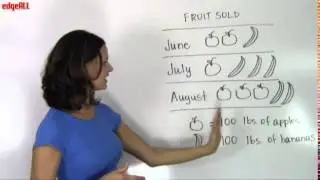 edgeALL
FRUIT SOLD
June
July
August
= 100 lbs. of apples
= 100 lbs. of bananas